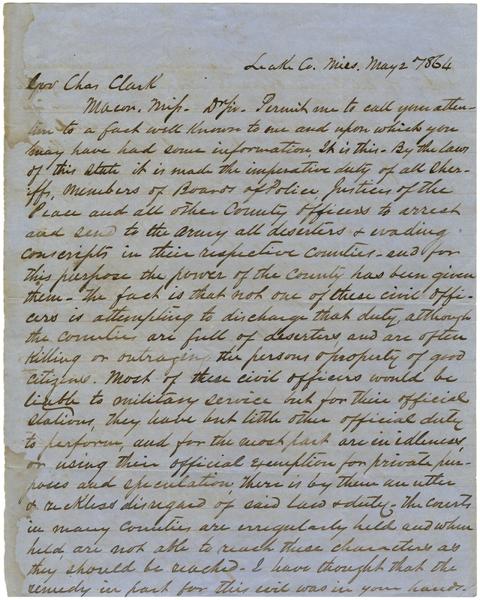 Leake Co. Miss. May 2nd 1864
Gov Chas Clark
Macon. Miss. Dr Sir. Permit me to call your atten-
tion to a fact well known to me and upon which you
may have had some information It is this- By the laws
of this State it is made the imperative duty of all Sher-
iffs, Members of Boards of Police Justices of the
Peace and all other County Officers to arrest
and send to the army all deserters & evading
conscripts in their respective Counties- and for
this purpose the power of the County has been given
them- the fact is that not one of these civil offi-
cers is attempting to discharge that duty, although
the Counties are full of deserters, and are often
killing or outraging the persons & property of good
citizens. Most of these civil officers would be
liable to military service but for their official
stations, they have but little other official duty
to perform, and for the most part are in idleness,
or using their official exemption for private pur-
poses and speculation, there is by them an utter
& reckless disregard of said law & duty- the courts
in many Counties are irregularly held and when
held, are not able to reach these characters as
they should be reached- I have thought that the
remedy in part for this evil was in your hands.